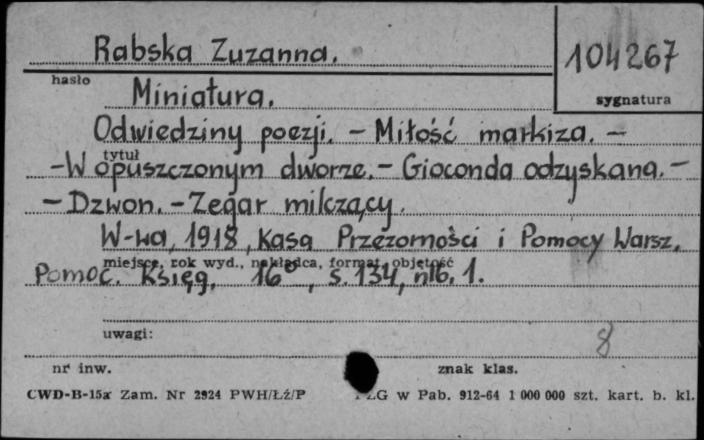 Rabska Zuzanna.
104267
hasło
sygnatura
Miniatura.
Odwiedziny poezji. – Miłość markiza. –
tytuł
– W opuszczonym dworze. – Gioconda odzyskana. –
– Dzwon. – Zegar milczący.
W-wa, 1918, Kasa Przezorności i Pomocy Warsz.
miejsce, rok wyd., nakładca, format, objętość
Pomoc. Księg., 16°, s. 134, nlb. 1.
uwagi:
8
nr inw.
znak klas.
CWD-B-15a Zam. Nr 2924 PWH/Łź/P
w Pab. 912-64 1 000 000 szt. kart. b. kl.